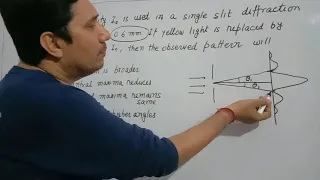 I₀ is used in a single slit diffraction
0.6 mm. If yellow light is replaced by
I₀, then the observed pattern will
is broader
maxima reduces
maxima remains
same
angles
θ₁
θ₁